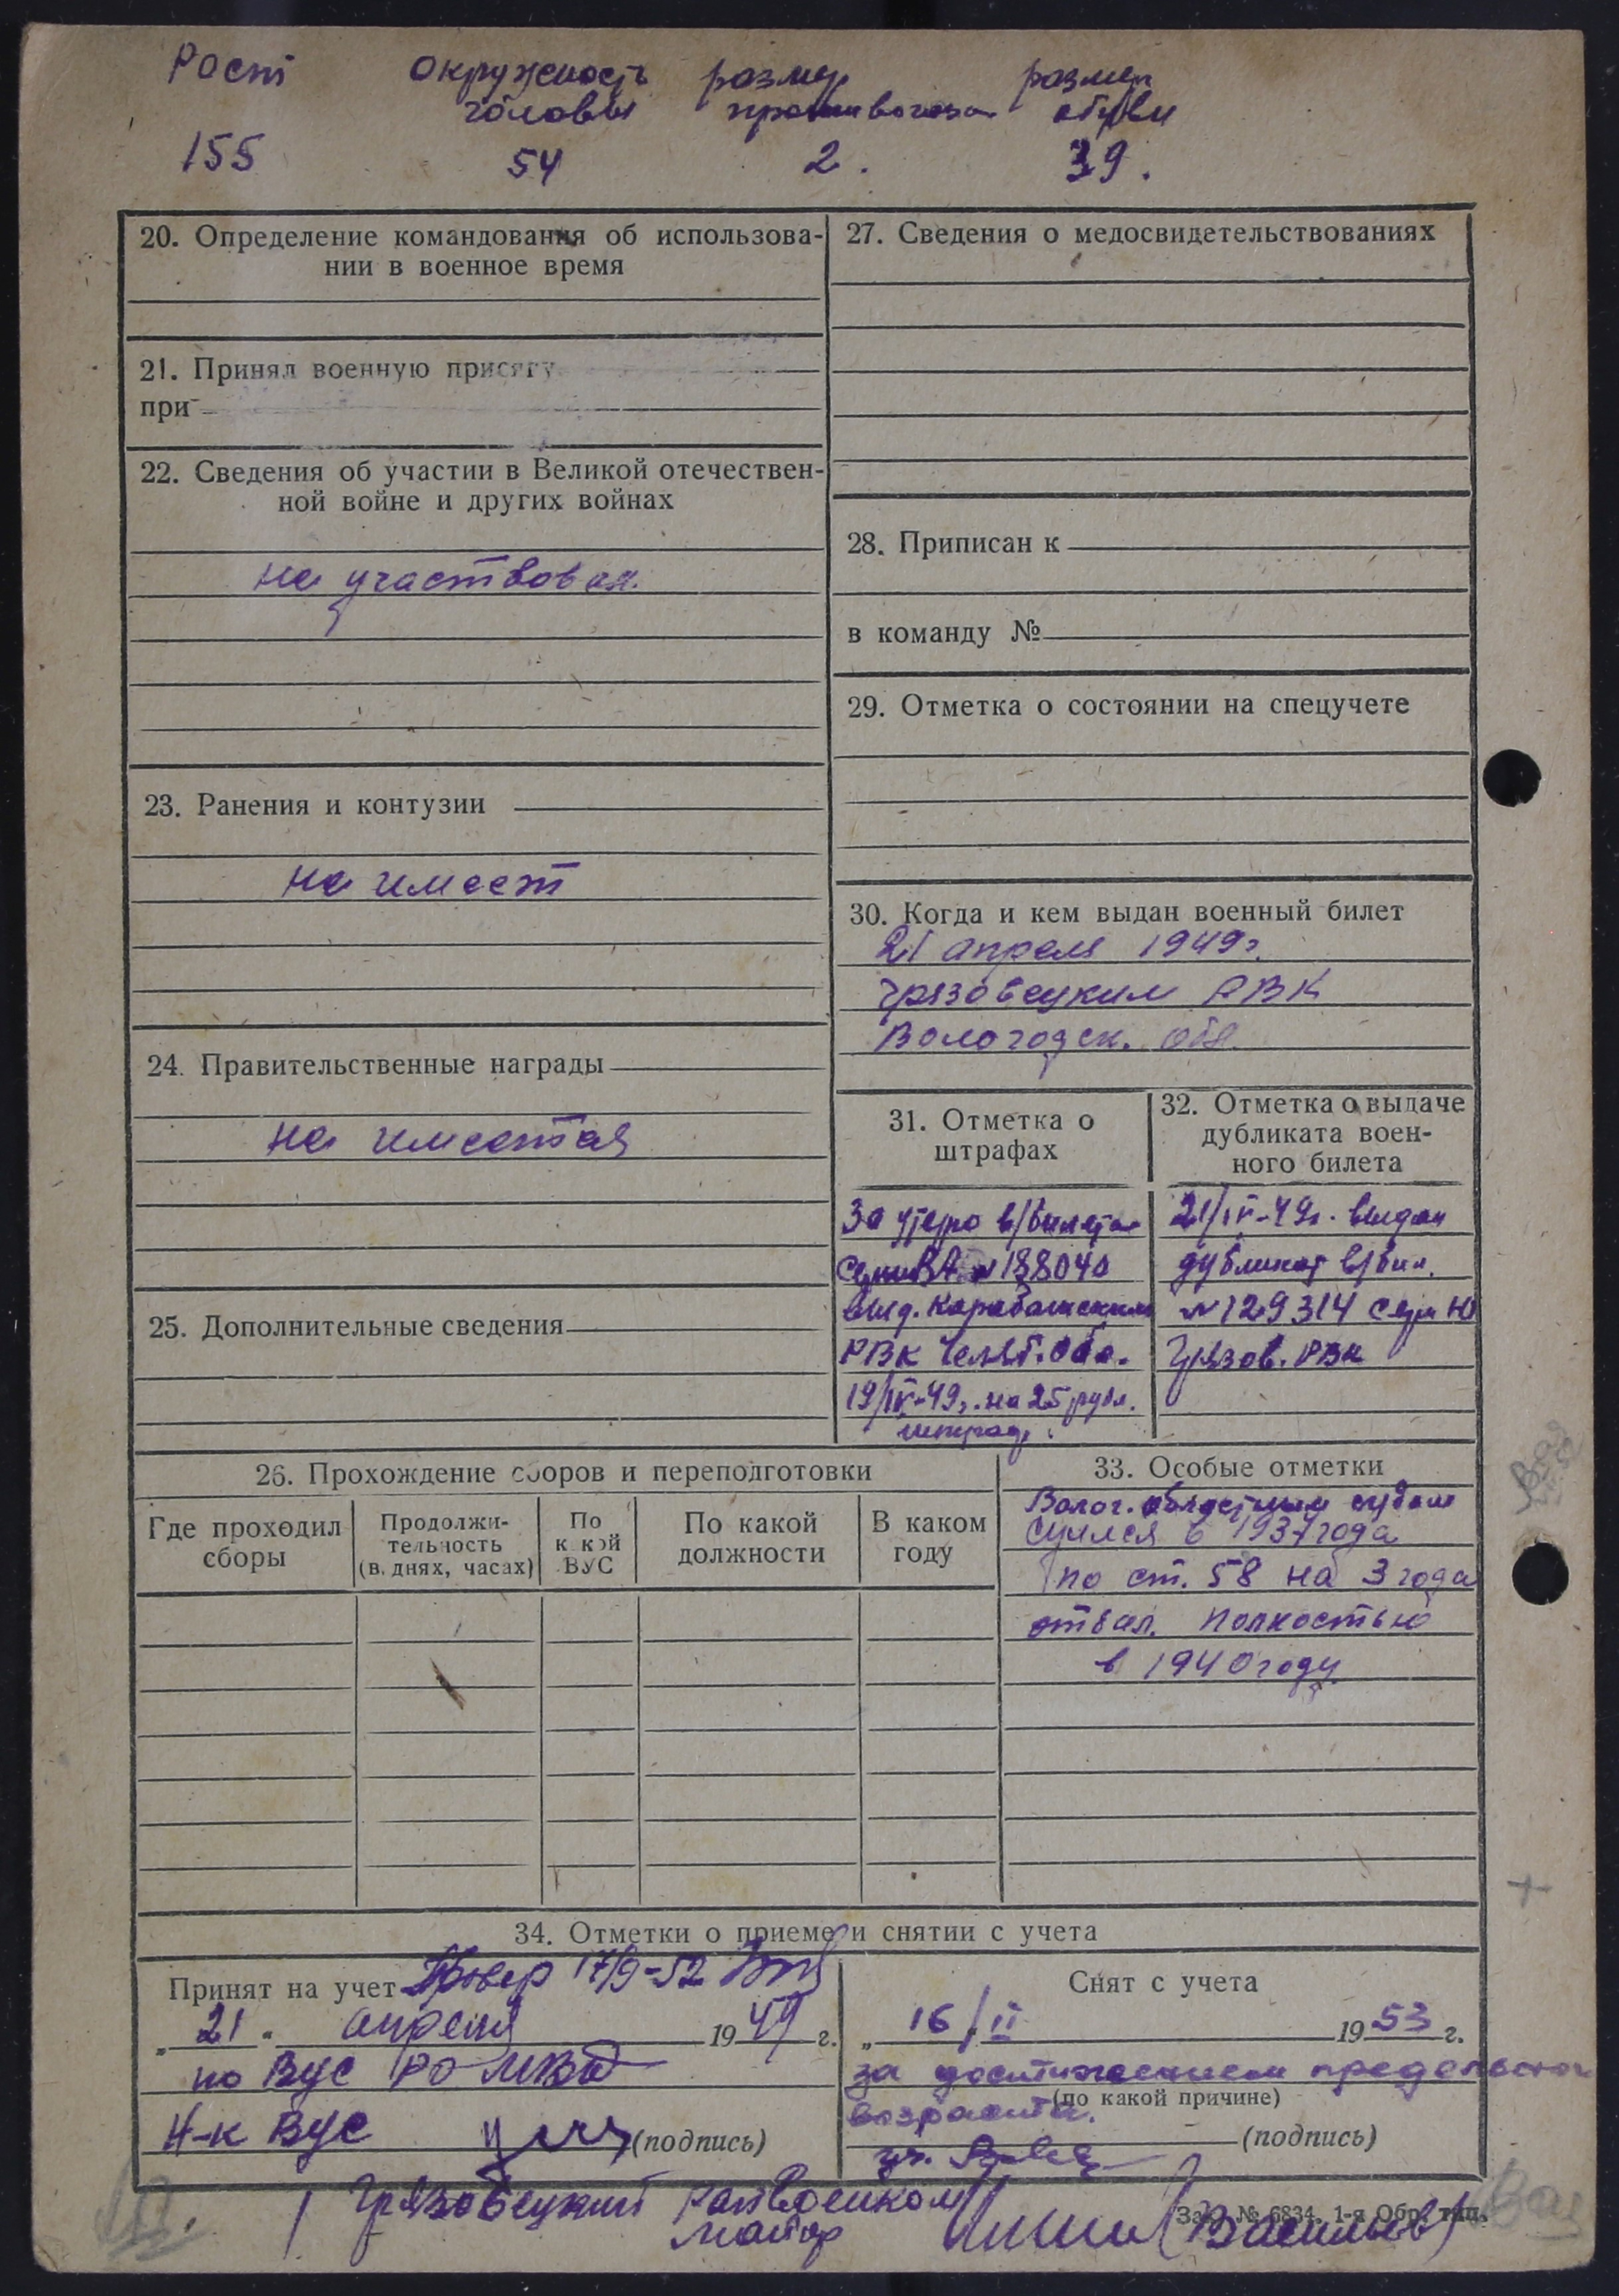 Рост окружность размер размер
головы противогаза обуви
155 54 2. 39.
20. Определение командования об использова-
нии в военное время
21. Принял военную присягу
при
22. Сведения об участии в Великой отечествен-
ной войне и других войнах
не участвовал.
23. Ранения и контузии
не имеет
24. Правительственные награды
не имеются
25. Дополнительные сведения
27. Сведения о медосвидетельствованиях
28. Приписан к
в команду №
29. Отметка о состоянии на спецучете
30. Когда и кем выдан военный билет
21 апреля 1949г.
Грязовецким РВК
Вологодск. обл.
31. Отметка о
штрафах
За утерю в/билета
серии ВА № 188040
выд. Карабашским
РВК Челяб. обл.
19/IV-49г. на 25 рубл.
штраф.
32. Отметка о выдаче
дубликата воен-
ного билета
21/IV-49г. выдан
дубликат в/бил.
№ 129314 сер Ю
Грязов. РВК
26. Прохождение сборов и переподготовки
Где проходил
сборы
Продолжи-
тельность
(в днях, часах)
По
какой
ВУС
По какой
должности
В каком
году
33. Особые отметки
Волог. областным судом
судился в 1937 года
по ст. 58 на 3 года
отбыл. полностью
в 1940 году
34. Отметки о приеме и снятии с учета
Принят на учет Провер 17/9-52
„21“ апреля 1949 г.
по ВУС РО МВД
Н-к ВУС (подпись)
Снят с учета
„16/II 1953 г.
за достижением предельного
(по какой причине)
возраста.
(подпись)
Грязовецкий райвоенком
майор (Васильев)
Зак. № 6834. 1-я Обр. тип.